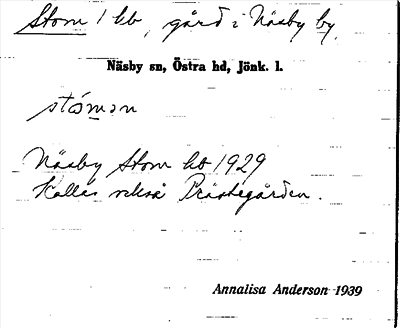 Stom 1 hb, gård i Näsby by.
Näsby sn, Östra hd, Jönk. l.
stómən
Näsby Stom hb 1929
Kallas också Prästegården.
Annalisa Anderson 1939